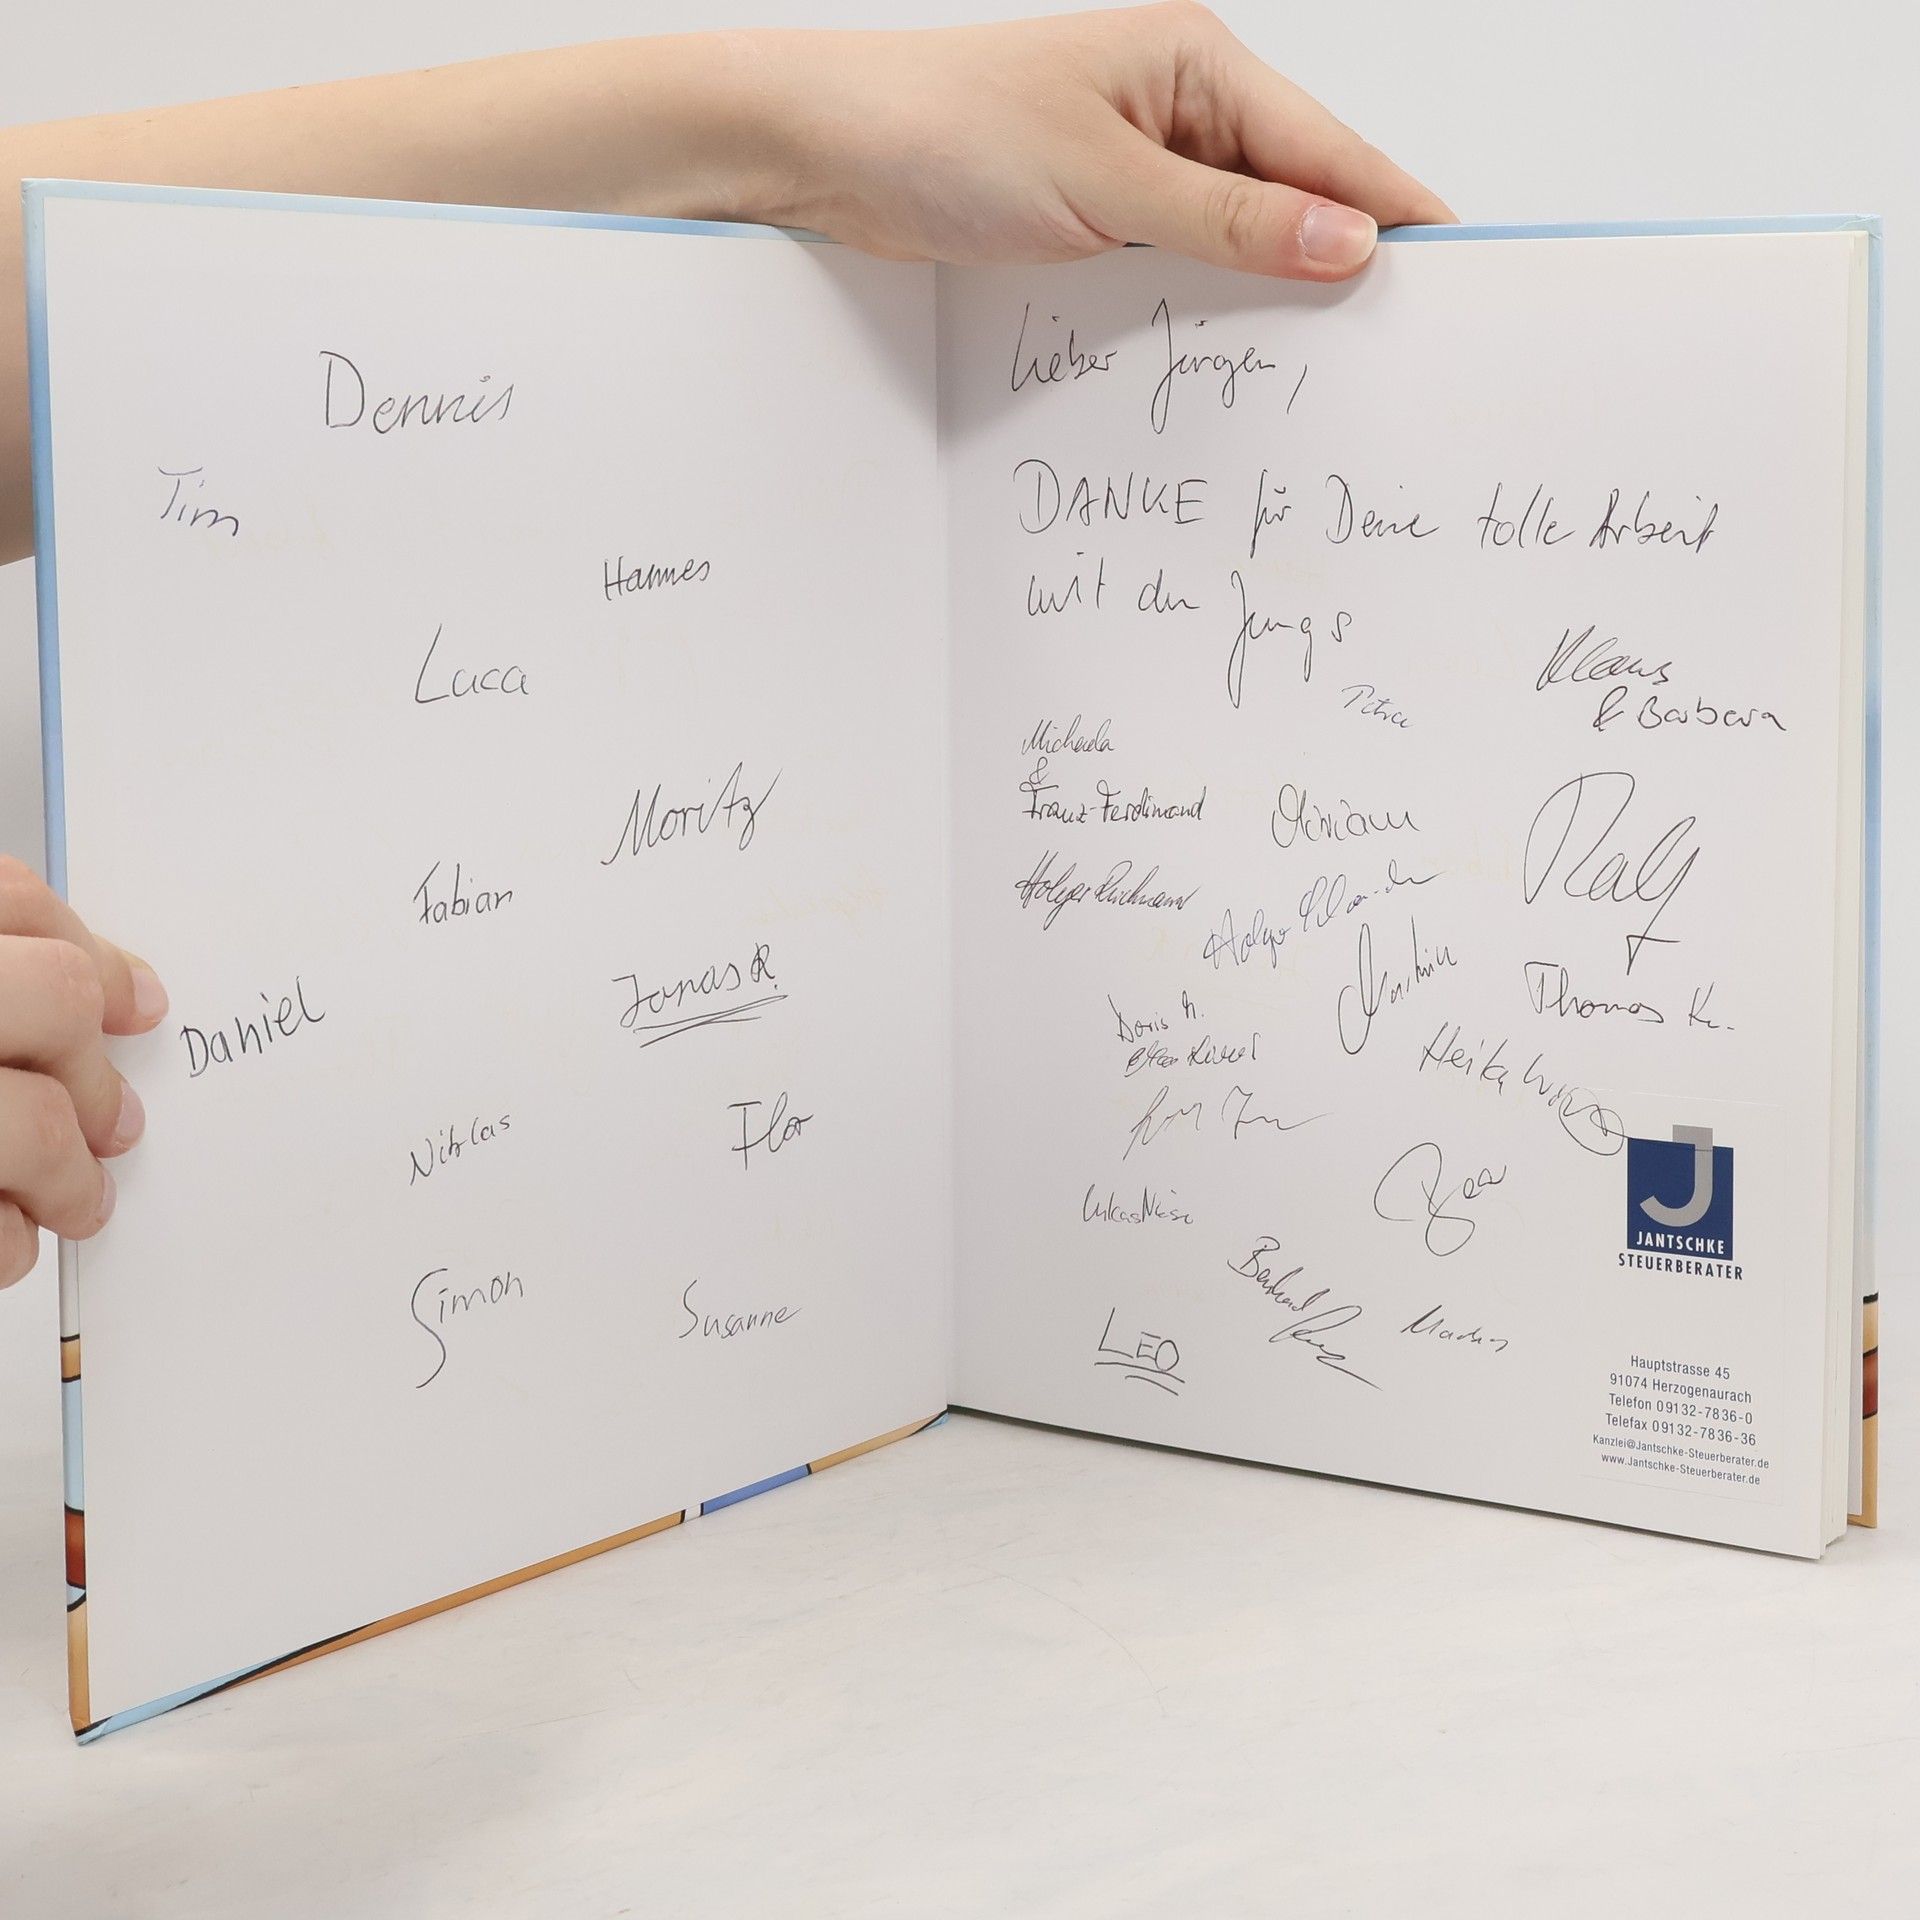 Dennis
Tim
Hannes
Luca
Moritz
Fabian
Jonas R.
Daniel
Niklas
Flo
Simon
Susanne
Lieber Jürgen,
DANKE für Deine tolle Arbeit
mit den Jungs
Petra
Klaus
& Barbara
Michaela
&
Franz-Ferdinand
Ralf
Holger
Holger
Martin
Thomas K.
Doris N.
Heike
Lukas
Bernhard
Markus
LEO
J
JANTSCHKE
STEUERBERATER
Hauptstrasse 45
91074 Herzogenaurach
Telefon 09132-7836-0
Telefax 09132-7836-36
Kanzlei@Jantschke-Steuerberater.de
www.Jantschke-Steuerberater.de